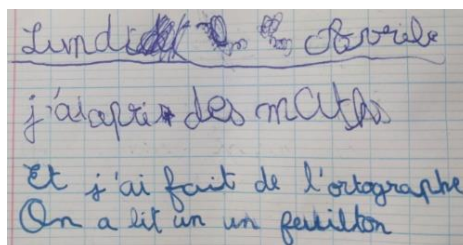 Lundi Avril
j'ai apri des maths
Et j'ai fait de l'ortographe
On a lit un un feuillton